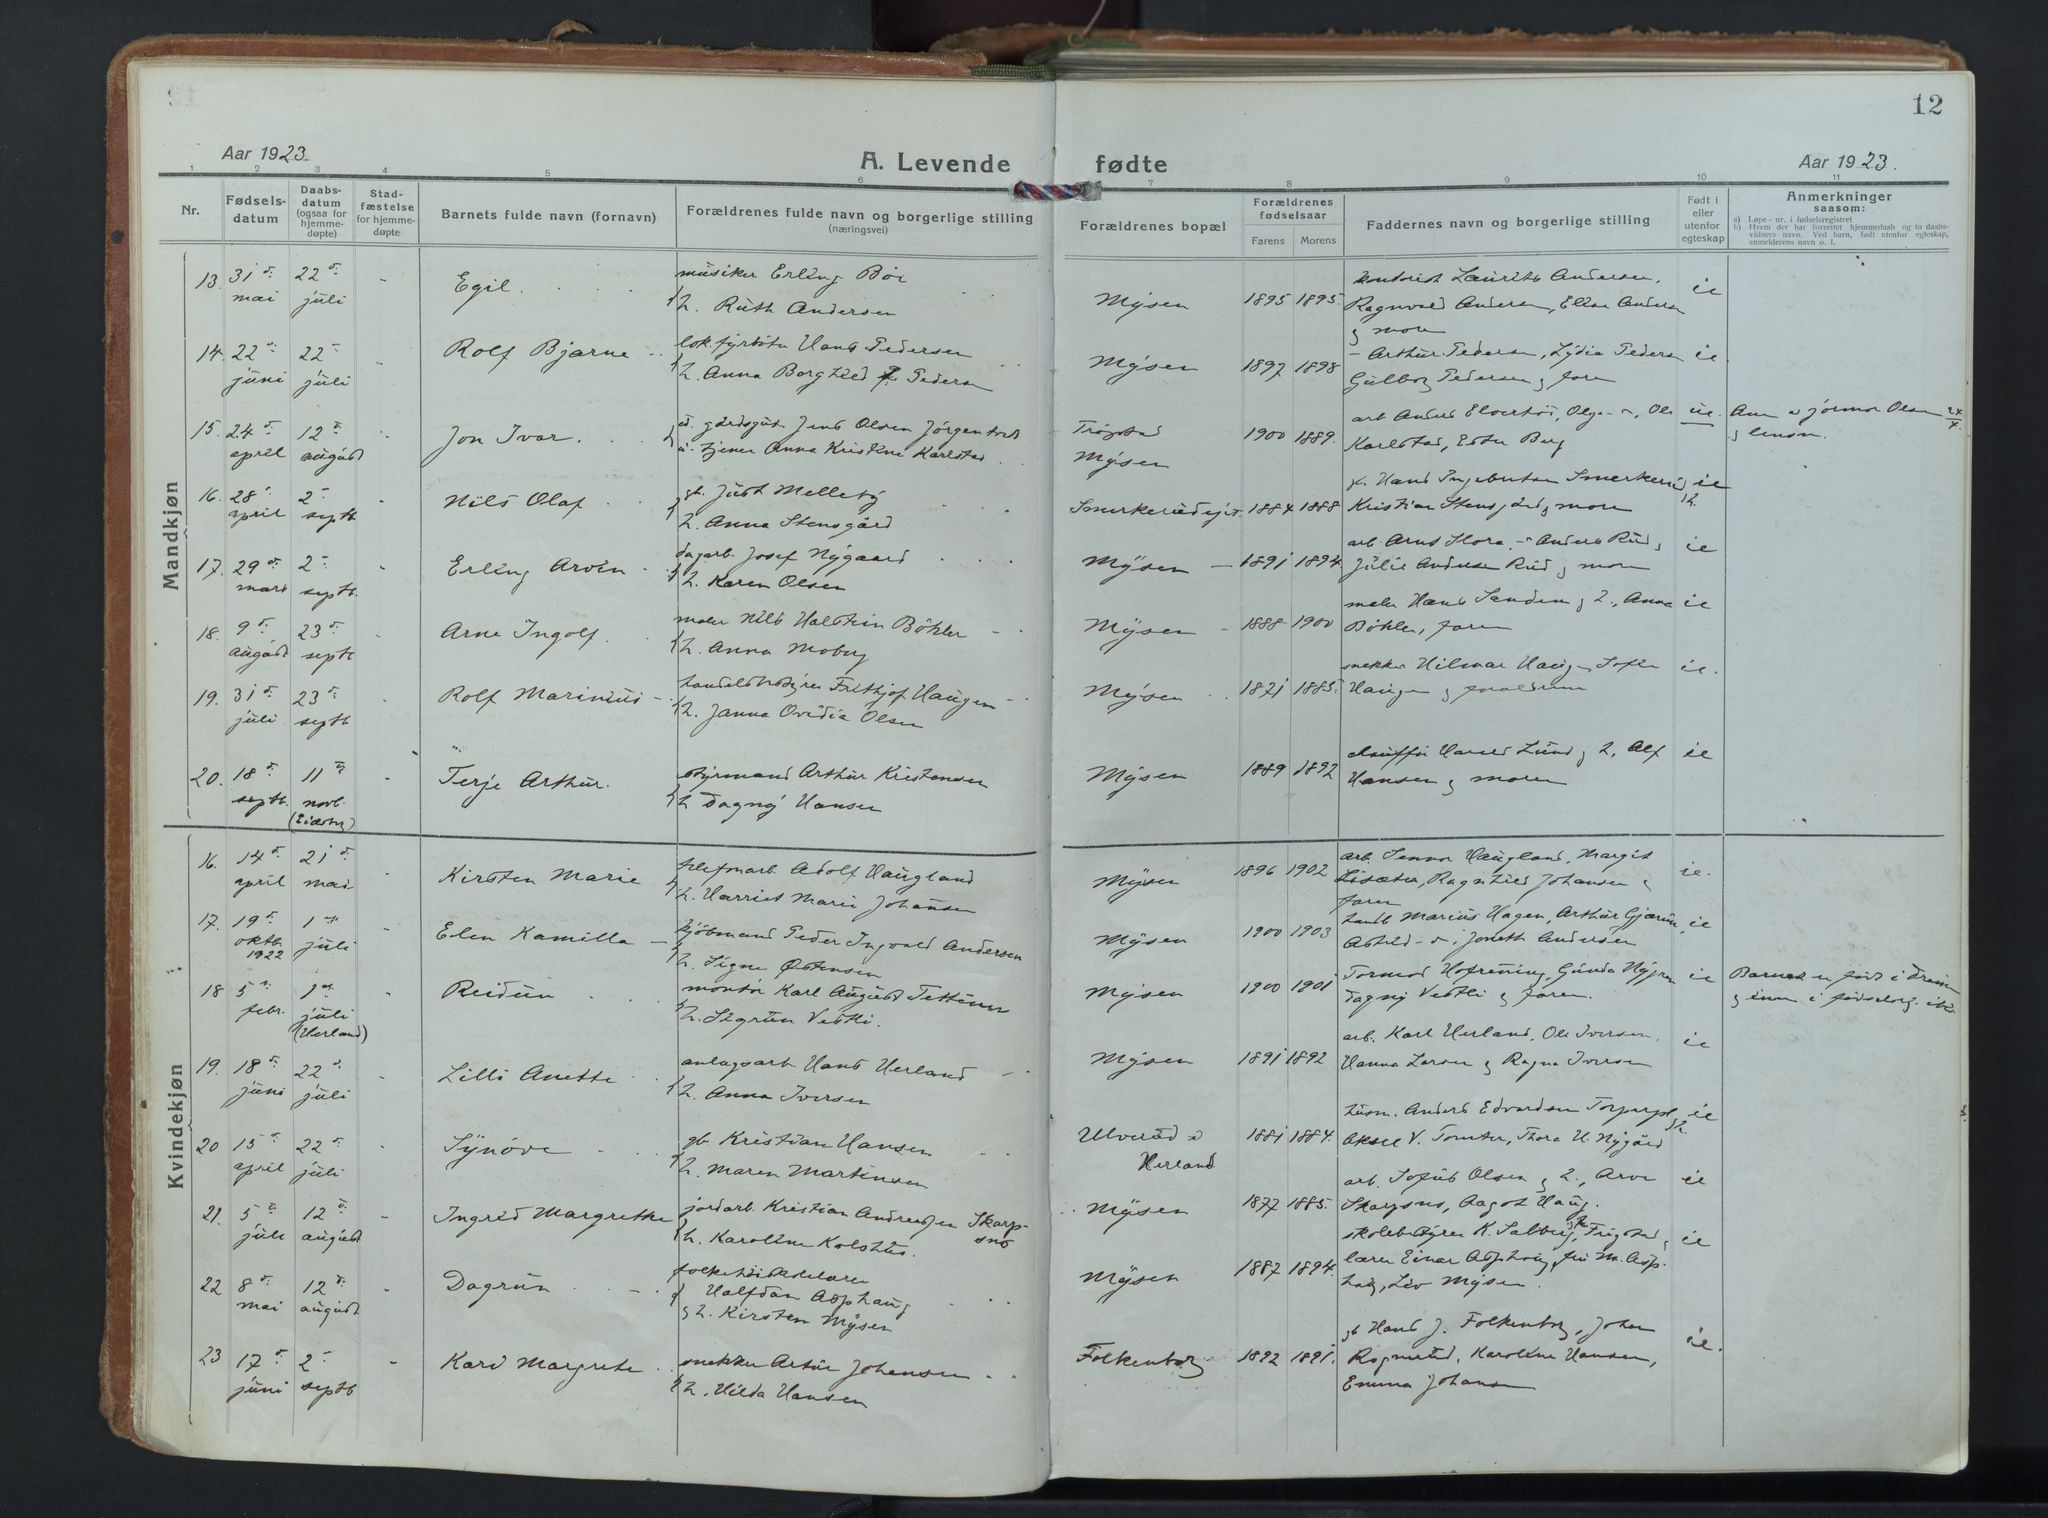 12
Aar 1923.
A. Levende fødte
Aar 1923.
1 2 3 4 5 6 7 8 9 10 11
Nr.
Fødsels-datum
Daabs-datum (ogsaa for hjemme-døpte)
Stad-fæstelse for hjemme-døpte
Barnets fulde navn (fornavn)
Forældrenes fulde navn og borgerlige stilling (næringsvei)
Forældrenes bopæl
Forældrenes fødselsaar
Farens Morens
Faddernes navn og borgerlige stilling
Født i eller utenfor egteskap
Anmerkninger saasom:
a) Løpe-nr. i fødselsregistret
b) Hvem der har forrettet hjemmedaab og to daabs-vidners navn. Ved barn, født utenfor egteskap, anmelderens navn o. l.
Mandkjøn
13. 31 mai 22 juli - Egil musiker Erling Böe
h. Ruth Andersen Mysen 1895 1895. Laurits Andersen, ie
Ragnvald Andersen, Ellen Andersen
g moren
14. 22 juni 22 juli - Rolf Bjarne lok.fyrböter Hans Pedersen
h. Anna Borghild Pedersen Mysen 1897 1898 - Arthur Pedersen, Lydia Pedersen ie.
Gulborg Pedersen g faren
15. 24 april 12 august - Jon Ivar gårdsgut Jens Olsen
tjener Anna Kristine Karlstad Trögstad
Mysen 1900 1889. arb. Anders
Karlstad, Ester Berg ue.
16. 28 april 2 septb - Nils Olaf gb. Just Melleby
h. Anna Stensgård 1884 1888 gb. Hans Ingebretsen ie
Kristian Stensgård g moren
17. 29 mars 2 septb. - Erling Arvin dagarb. Josef Nygaard
h. Karen Olsen Mysen 1891 1894 arb. Arnt Hora, - Anders Rud g ie
Julie Andersen Rud g moren
18. 9 august 23 septb - Arne Ingolf maler Nils Halstein Böhler
h. Anna Moberg Mysen 1888 1900 maler Hans Sanden g h., Anna ie
Böhler, faren
19. 31 juli 23 septb - Rolf Marinius handelsbestyrer Frithjof Haugen
h. Janna Ovidia Olsen Mysen 1821 1885. snekker Hilmar Haug, Sofie ie.
Haugen g foreldrene
20. 18 septb. 11 novb. (Eidsberg) Terje Arthur. styrmand Arthur Kristensen
h. Dagny Hansen Mysen 1889 1892 Harald Lund g h., Alf ie
Hansen g moren
Kvindekjøn
16. 14 april 21 mai - Kirsten Marie telefonarb. Adolf Haugland
h. Harriet Marie Johansen Mysen 1896 1902 arb. Haugland, Margit ie.
Ragnhild Johansen g
faren
17. 19 oktb. 1922 1 juli - Elen Kamilla kjöbmand Peder Ingvald Andersen
h. Signe Östensen Mysen 1900 1903 Marius Hagen, Arthur ie
Astrid Joneth Andersen
18 5 febr. 1 juli (Herland) Reidun montör Karl August
h. Sigrun Vestli. Mysen 1900 1901 Tormod Hofrening, Gunda ie
Dagny Vestli g faren. Barnet er født i
19. 18 juni 22 juli - Lilli Anette anlagsarb. Hans Herland
h. Anna Iversen Mysen 1891 1892 arb. Karl Herland, Ole Iversen, ie
Hanna Larsen g Ragna Iversen
20 15 april 22 juli - Synöve gb Kristian Hansen
h. Maren Martinsen Ulverud i
Herland 1881 1884. Anders Edvardsen ie
Aksel V. Tomter, Thora H. Nygård
21. 5 juli 12 august - Ingrid Margrethe jordarb. Kristian Andreassen Skarpsno
h. Karoline Kolshus. Mysen 1877 1885. arb. Sofus Olsen g h., Arve ie
Skarpsno, Aagot Haug.
22 8 mai 12 august - Dagrun folkehöiskolelærer
Halfdan Asphaug
g h. Kirsten Mysen Mysen 1887 1894. skolebestyrer K. Salberg, Frigstad g ie
lærer Einar Asphaug, fru M. Asp-
haug, Liv Mysen.
23 17 juni 2 septb - Kari Margrete snekker Artur Johansen
h. Hilda Hansen Folkenborg 1892 1891. gb Hans J. Folkenborg, Johan ie.
Karoline Hansen,
Emma Johansen